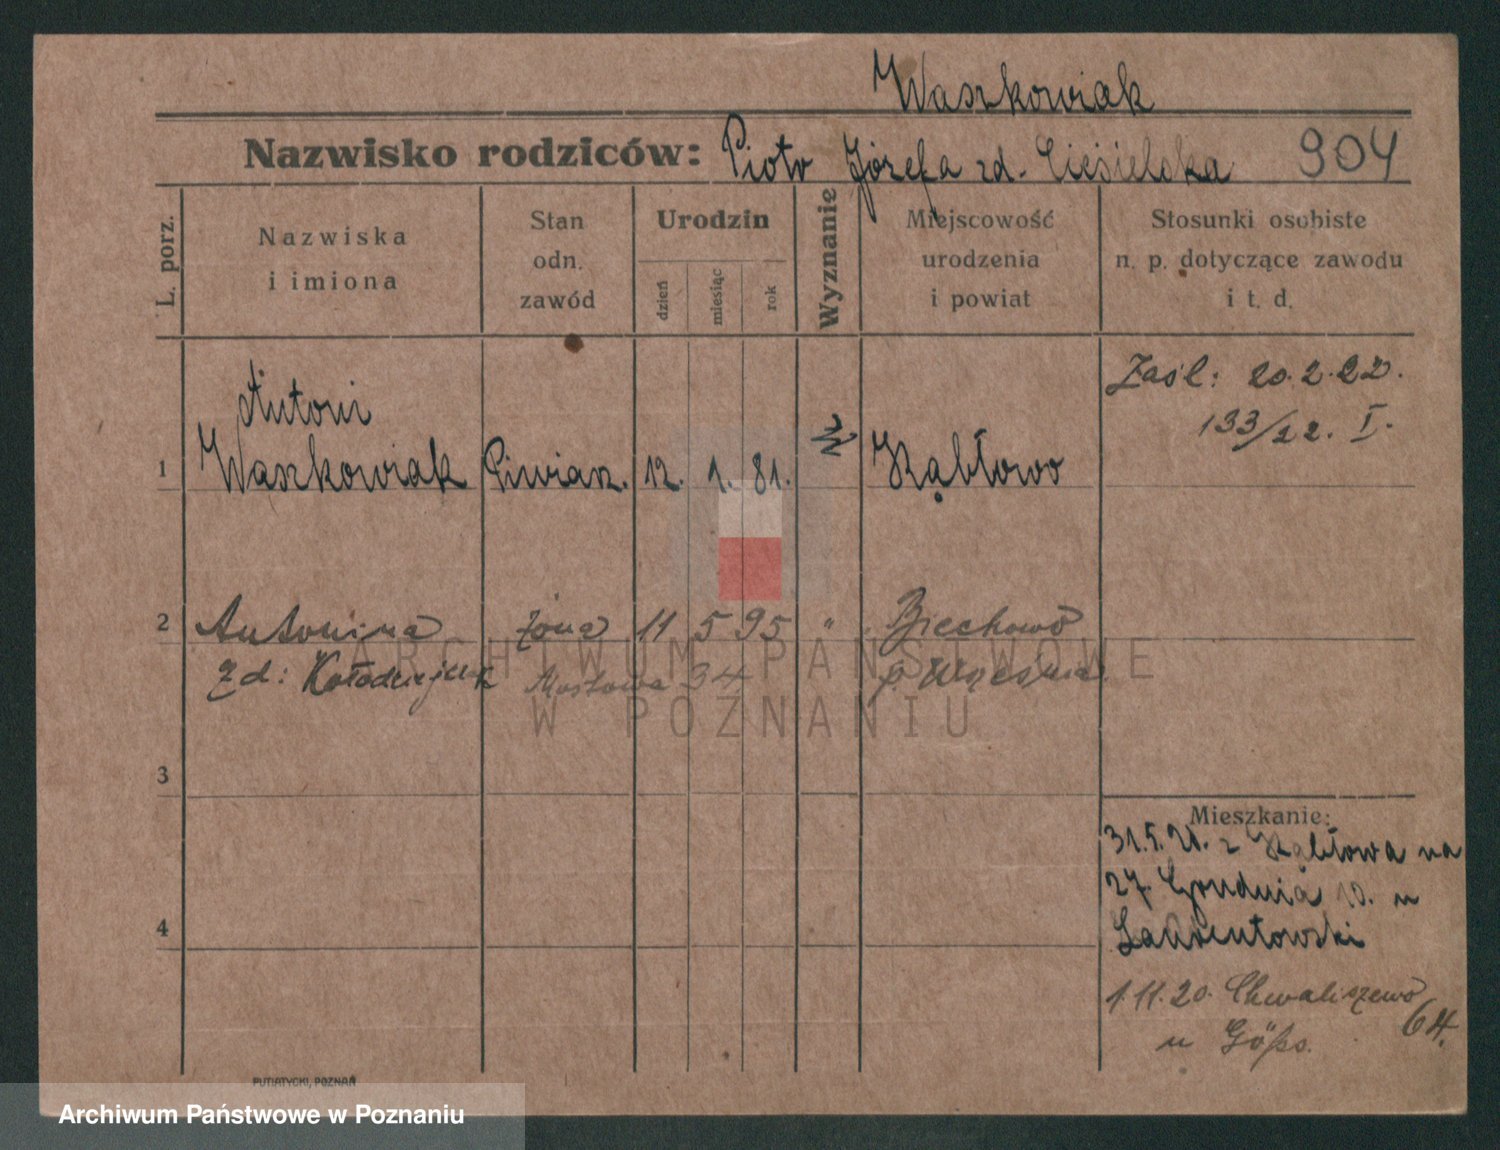 Waszkowiak
Nazwisko rodziców: Piotr Józefa zd. Cieśielska 904
L. porz.
Nazwiska i imiona
Stan odn. zawód
Urodzin
dzień
miesiąc
rok
Wyznanie
Miejscowość urodzenia i powiat
Stosunki osobiste n. p. dotyczące zawodu i t. d.
Antoni
1 Waszkowiak 12. 1. 81.
Zaśl: 20.2.22.
133/22. I.
2 Antonina żona 11 5 95 " Biechowo
zd: Kołodziejczak Mostowa 34 p. Września
3
4
Mieszkanie:
z na
27 Grudnia 10. u
1.11.20. Chwaliszewo
64.
u
PUTIATYCKI, POZNAŃ
ARCHIWUM PAŃSTWOWE
W POZNANIU
Archiwum Państwowe w Poznaniu